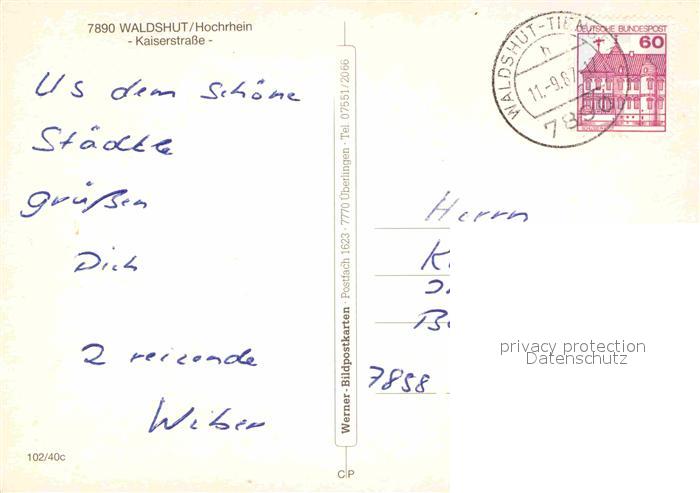 7890 WALDSHUT/Hochrhein
- Kaiserstraße -
Us dem schöne
Städtle
grüßen
Dich
2 reizende
Wiber
102/40c
Werner-Bildpostkarten · Postfach 1623 · 7770 Überlingen · Tel. 07551/2066
C|P
WALDSHUT-TIENGEN
h
11.-9.87
7890
DEUTSCHE BUNDESPOST
60
Herrn
K
7858
privacy protection
Datenschutz